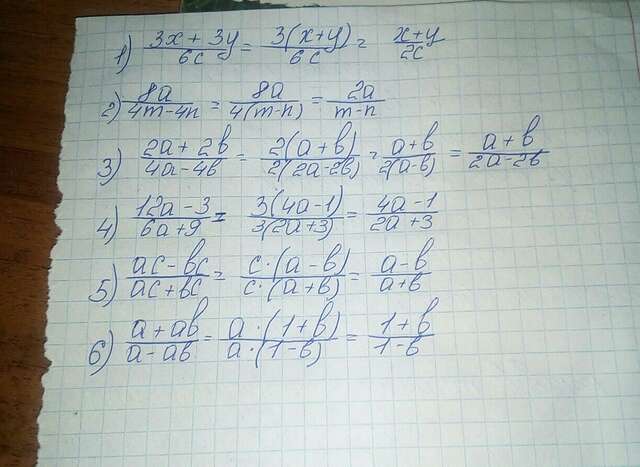 1) (3x + 3y)/(6c) = (3(x+y))/(6c) = (x+y)/(2c)
2) (8a)/(4m-4n) = (8a)/(4(m-n)) = (2a)/(m-n)
3) (2a + 2b)/(4a - 4b) = (2(a+b))/(2(2a-2b)) = (a+b)/(2(a-b)) = (a+b)/(2a-2b)
4) (12a-3)/(6a+9) = (3(4a-1))/(3(2a+3)) = (4a-1)/(2a+3)
5) (ac-bc)/(ac+bc) = (c·(a-b))/(c·(a+b)) = (a-b)/(a+b)
6) (a+ab)/(a-ab) = (a·(1+b))/(a·(1-b)) = (1+b)/(1-b)